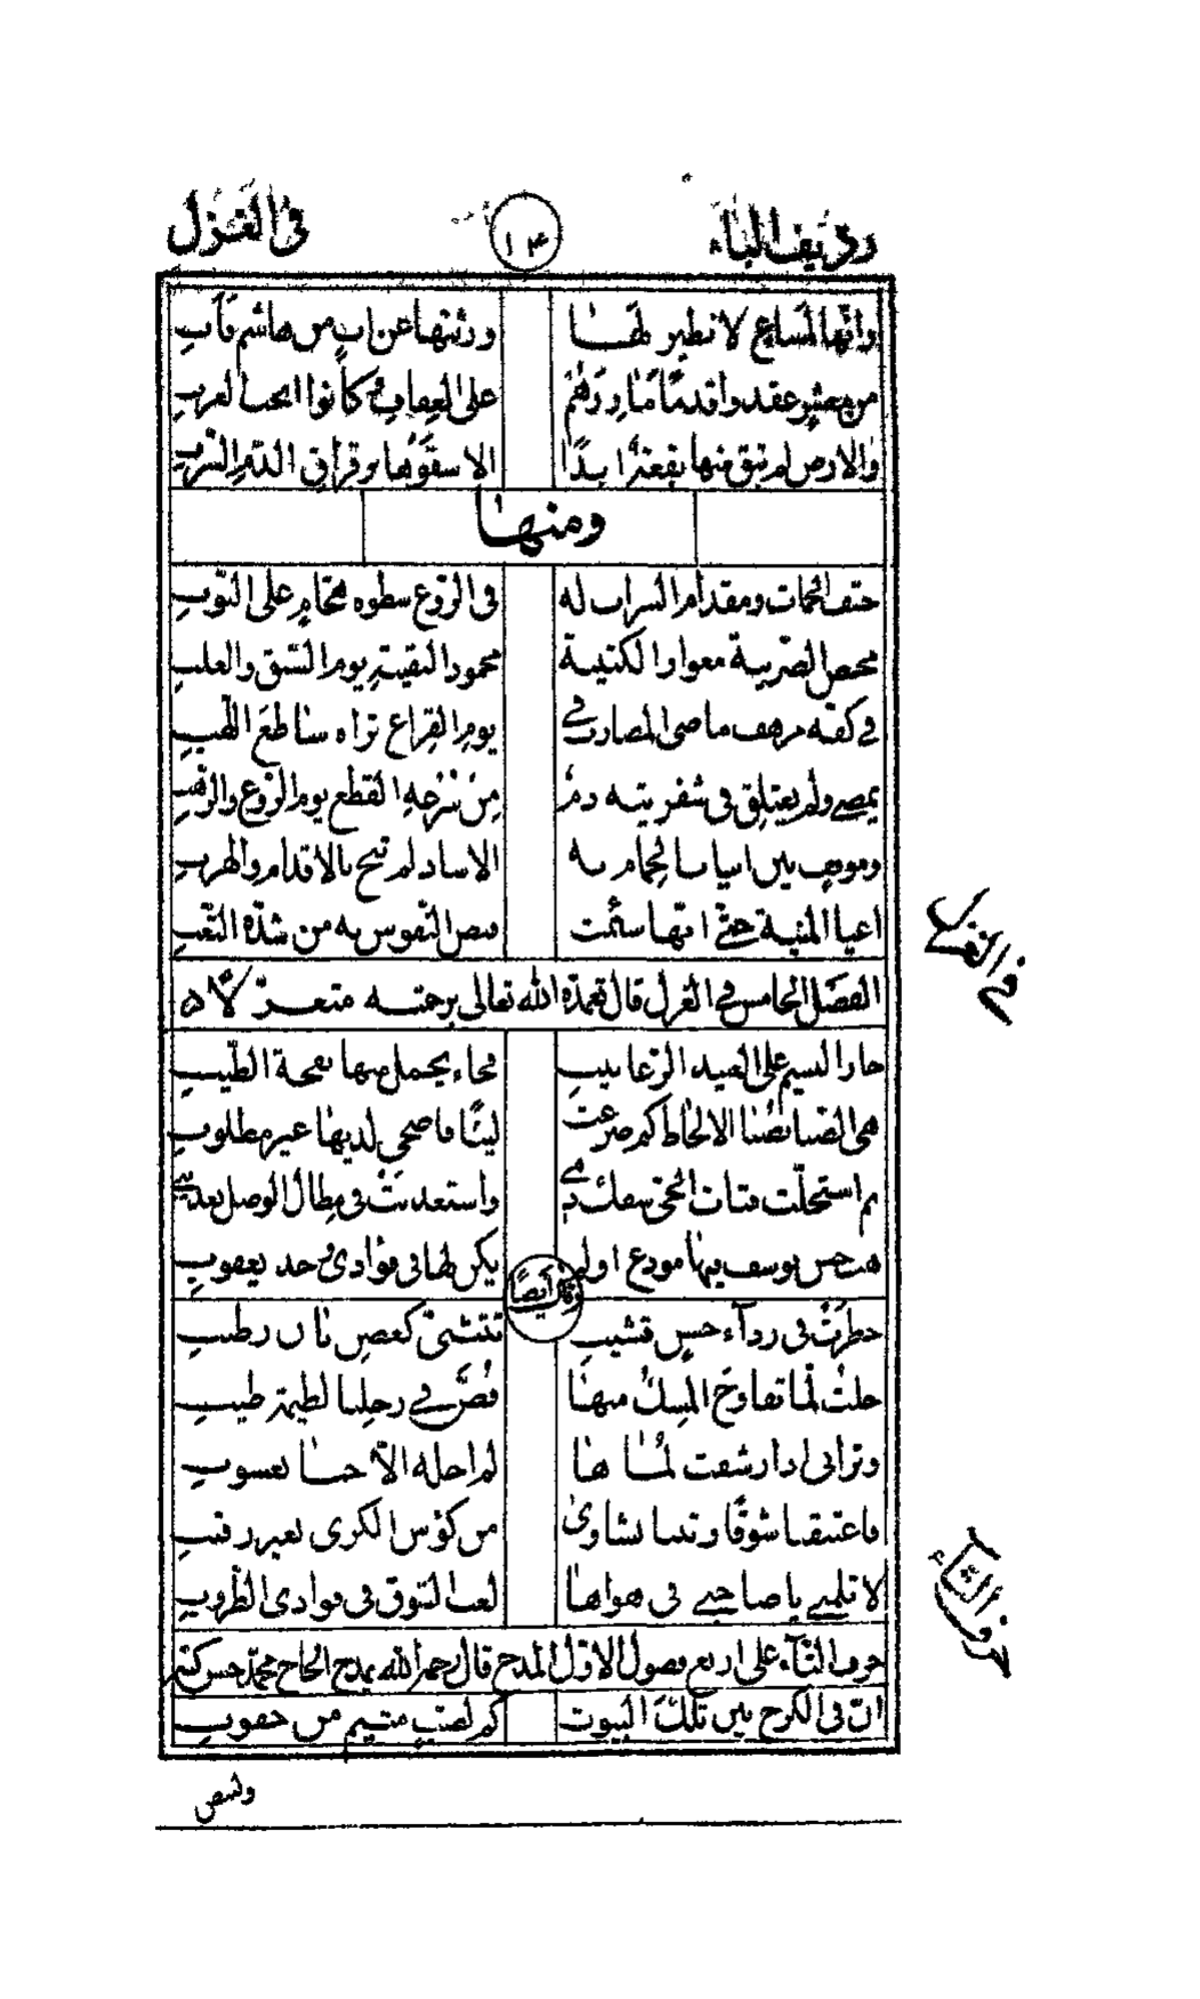 رديف الباء ١٤ في الغزل
وانها لمساع لا نظير لها ورثتها عن اب من هاشم فاب
من معشر عقدوا قدمًا مآزرهم على العفاف وكانوا انجب العرب
والارض لم تبق منها بقعة ابدًا الا سقوها برقراق الدم السرب
ومنها
حتف الكماة ومقدام السراب له في الروع سطوة مقحام على النوب
محض الضريبة مغوار الكتيبة محمود النقيبة يوم السبق والغلب
في كفه مرهف ماضي المضارب في يوم القراع تراه ساطع اللهب
يمضي ولم يعتلق في شفرتيه دم من سرعة القطع يوم الروع والرهب
وموقف بين انياب الحمام به الاساد لم تنج بالاقدام والهرب
اعيا المنية حتى انها سئمت قبض النفوس به من شدة التعب
الفصل الخامس في الغزل قال تغمده الله تعالى برحمته متغزلًا
جاز النسيم على الغيد الرعابيب فجاء يحمل منها نفحة الطيب
هي الضبا نصبنا الالحاظ كم صرعت ليثًا فاضحى لديها غير مطلوب
بم استحلت فتات الحي سفك دمي واستعذبت في مطال الوصل تعذيبي
هب حسن يوسف فيها مودع اولم يكن لها في فؤادي وجد يعقوب
وقال ايضًا
خطرت في رداء حسن قشيب تتثنى كغصن بان رطيب
خلت لما تفاوح المسك منها فض في رحلنا لطيمة طيب
وتراني اذا رشفت لماها لم اخله الا جنا يعسوب
فاعتنقنا شوقًا وبتنا نشاوى من كؤس الكرى بغير رقيب
لا تلمني يا صاحبي في هواها لعب الشوق في فوادي الطروب
حرف التآء على اربع فصول الاول المدح قال رحمه الله يمدح الحاج محمد حسن كبه
ان في الكرخ بين تلك البيوت كم لصب متيم من خفوت
ولشص
في الغزل
حرف التاء